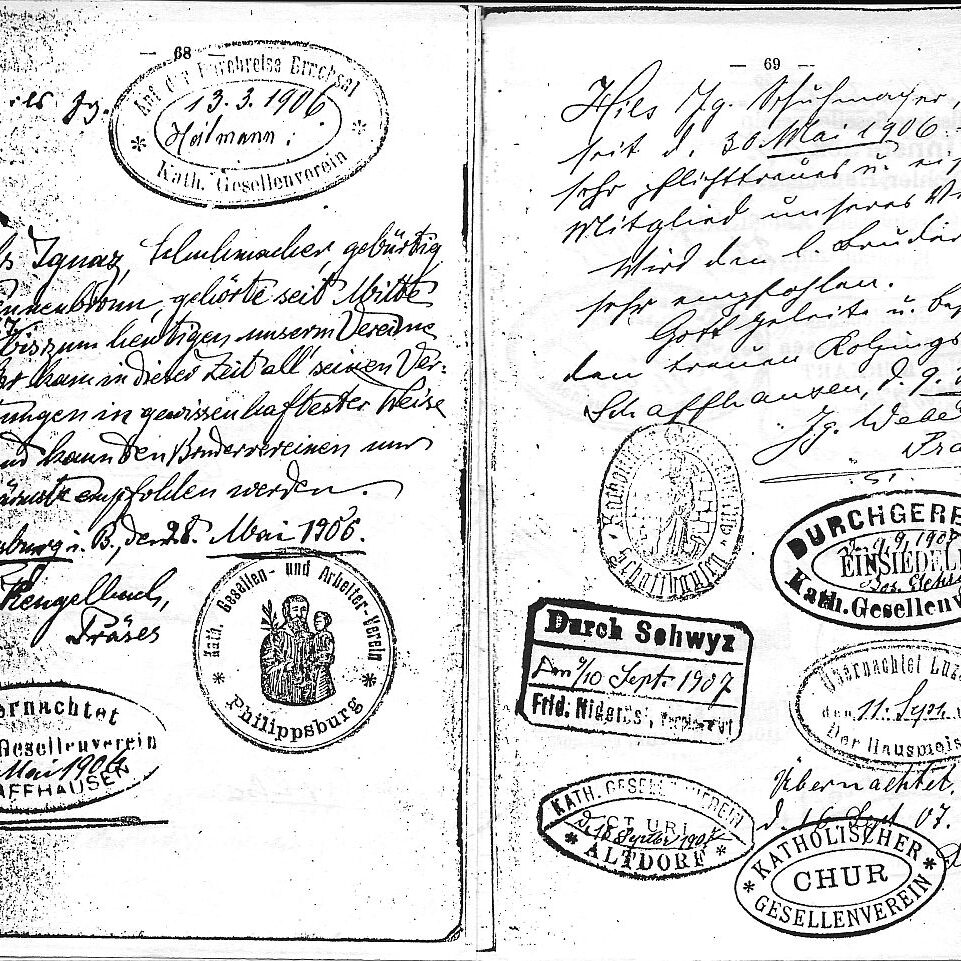 — 68 —
Auf der Durchreise Bruchsal
13. 3. 1906
Kath. Gesellenverein
Ignaz, Schuhmacher, gebürtig
gehörte seit Mitte
bis zum heutigen unserm Vereine
kam in dieser Zeit all' seinen Ver-
tungen in gewissenhaftester Weise
und kann den Brudervereinen nur
empfohlen werden.
sburg i. B., den 28. Mai 1906.
Kengelbach,
Präses
Kath. Gesellen- und Arbeiter-Verein
Philippsburg
ernachtet
Gesellenverein
Mai 1906
AFFHAUSEN
— 69 —
Hils Ig. Schuhmacher,
seit d. 30 Mai 1906
sehr pflichttreues u.
Mitglied unseres
Wird den l. Brüder
sehr empfohlen.
Gott geleite u.
den treuen Kolpings
Schaffhausen, d. 9.
Jg. Webe
Prä
Schaffhausen
DURCHGERE
9. 9. 1907
EINSIEDEL
Kath. Gesellenv
Durch Schwyz
den 9/10 Sept. 1907
Frid.
Übernachtet Luze
den 11. Sept.
Der Hausmeis
KATH. GESELLENVEREIN
CT URI
ALTDORF
Übernachtet.
d. 16 Sept 07.
KATHOLISCHER
CHUR
GESELLENVEREIN